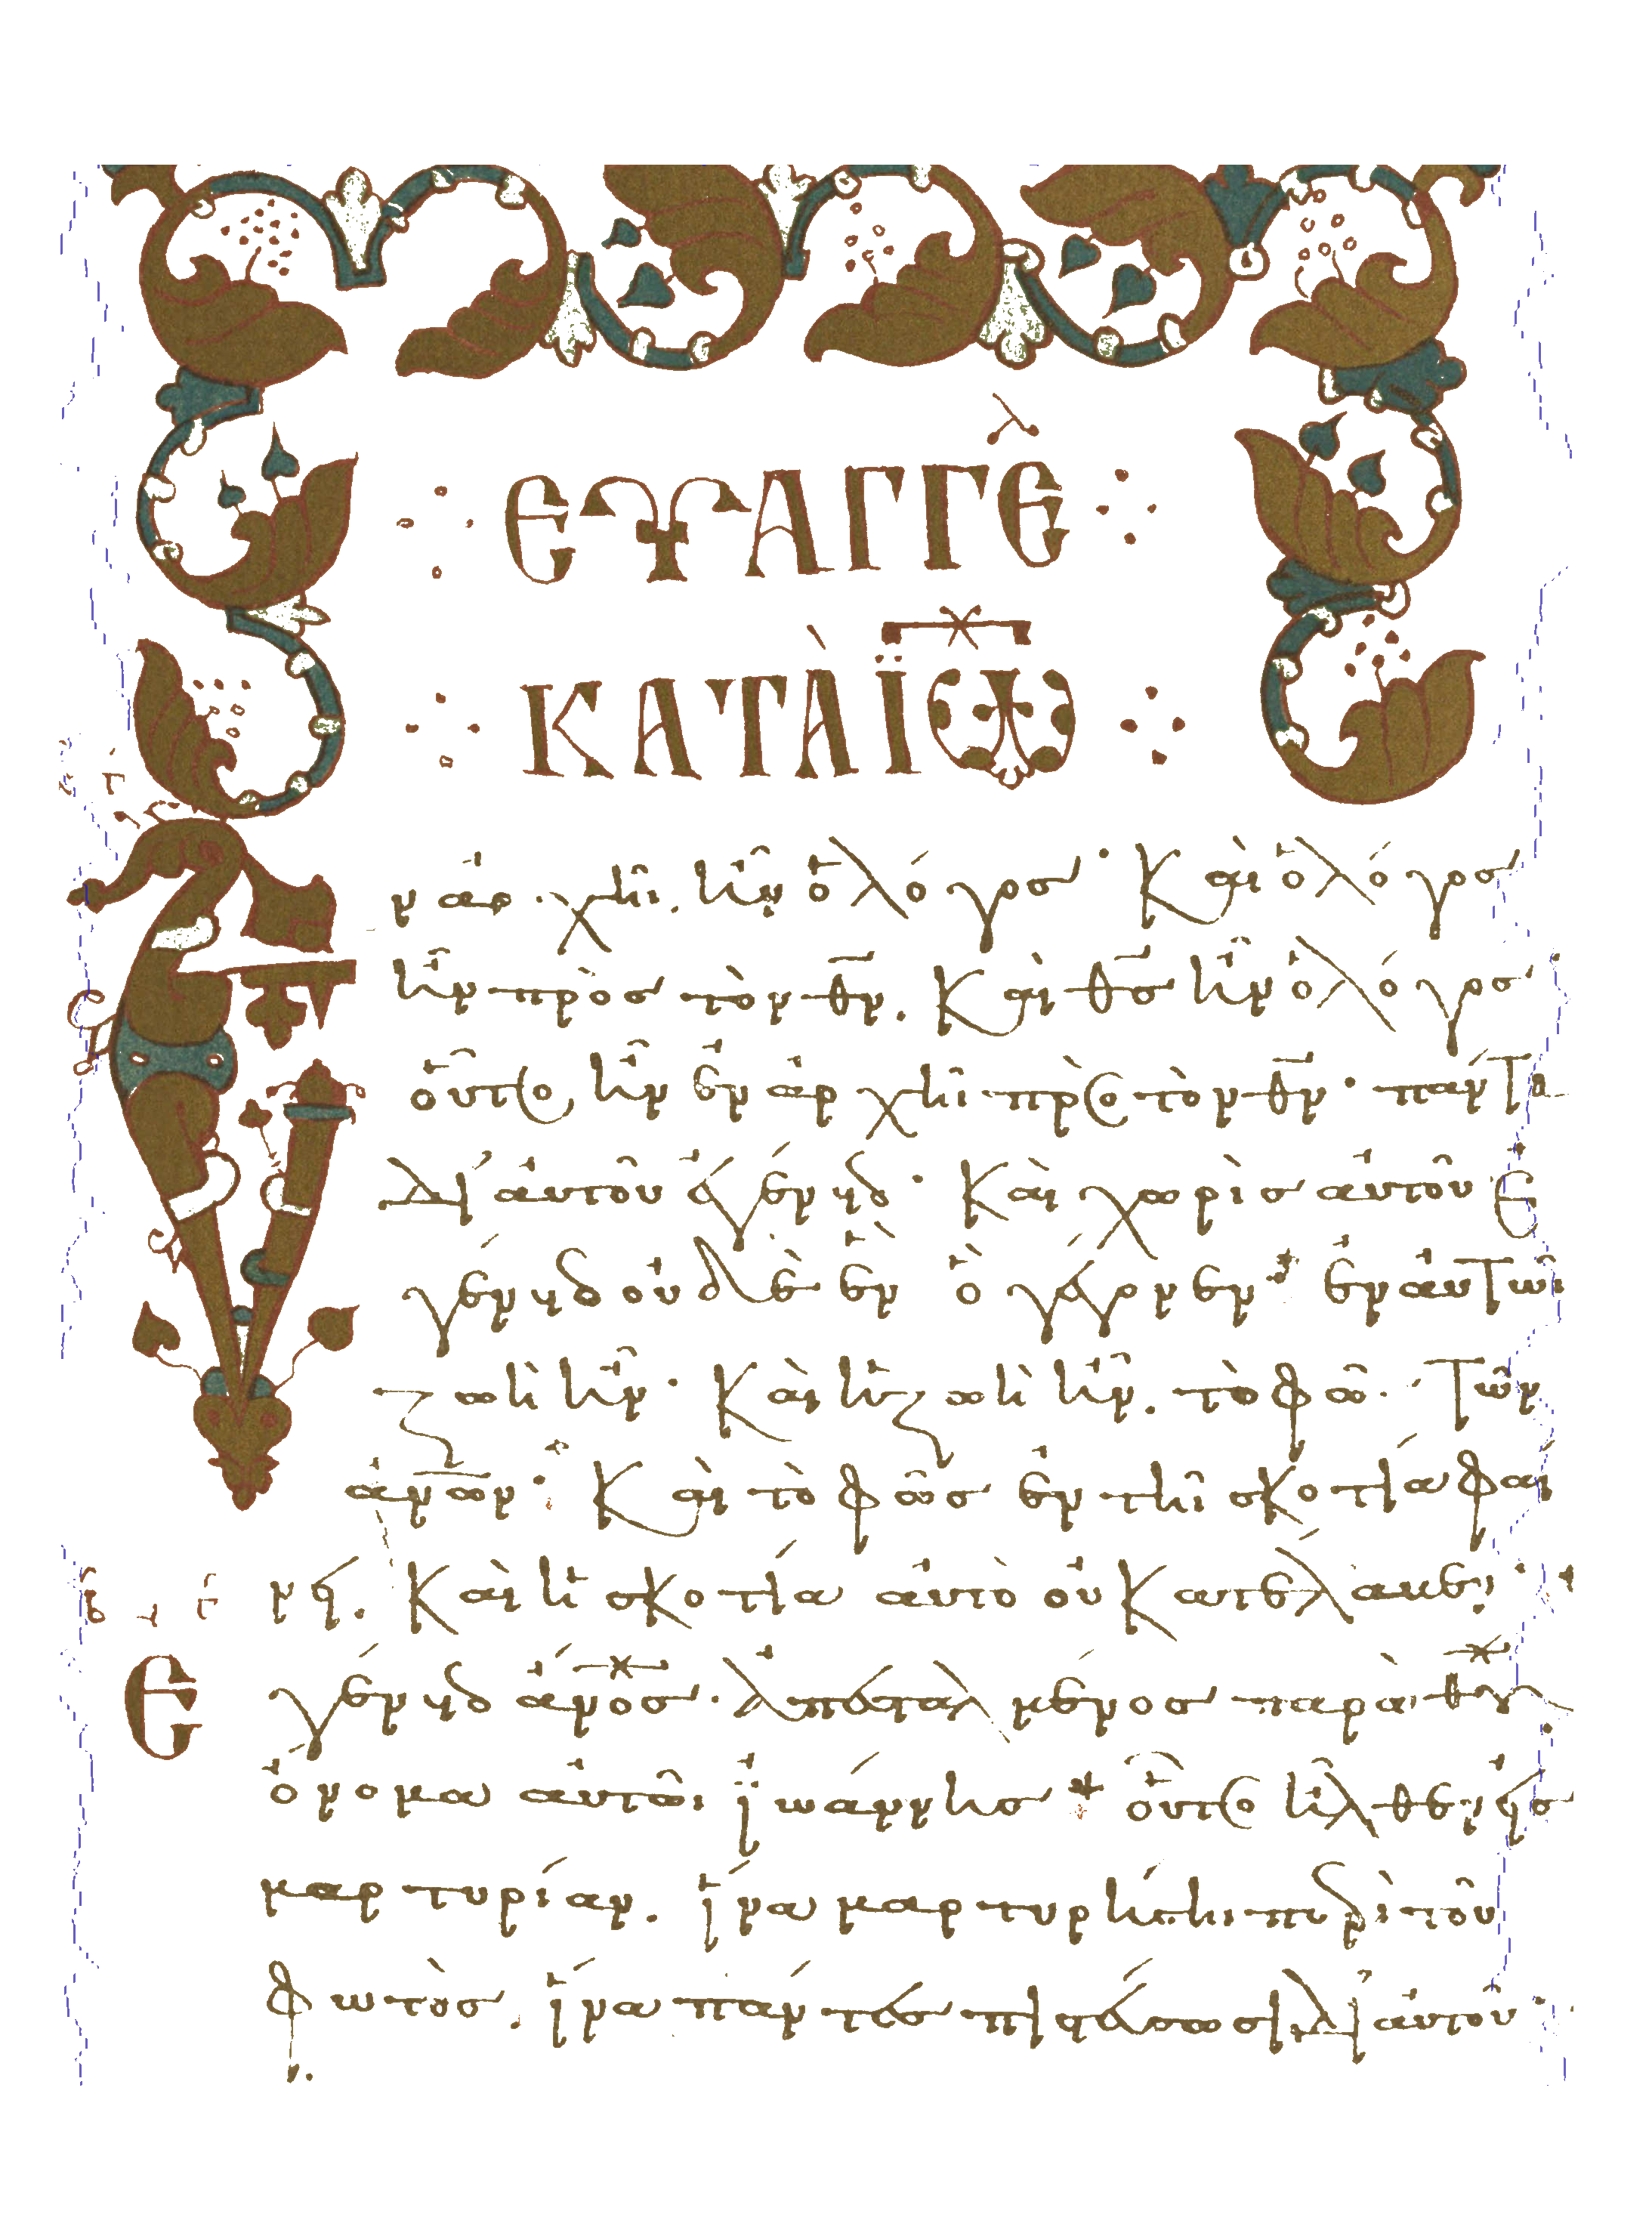 ΕΥΑΓΓΕλ
ΚΑΤΑ ΪΩ
Εν ἀρχῆι ἦν ὁ λόγοσ· Καὶ ὁ λόγοσ
ἦν πρὸσ τὸν θν̄. Καὶ θσ̄ ἦν ὁ λόγοσ
οὗτος ἦν ἐν ἀρχῆι πρὸς τὸν θν̄· πάντα
δι αὐτοῦ ἐγένετο· Καὶ χωρὶσ αὐτοῦ ἐ
γένετο οὐδὲ ἓν ὃ γέγονεν· ἐν αὐτῶι
ζωὴ ἦν· Καὶ ἡ ζωὴ ἦν. τὸ φῶ· τῶν
ἀν̄ων· Καὶ τὸ φῶσ ἐν τῆι σκοτία φαί
νει. Καὶ ἡ σκοτία αὐτὸ οὐ Κατέλαβεν·
Ἐγένετο ἄν̄οσ· ἀπεσταλμένοσ παρὰ θῡ
ὄνομα αὐτῶι ἰωάννησ οὗτος ἦλθεν εἰσ
μαρτυρίαν. ἵνα μαρτυρήσηι περὶ τοῦ
φωτὸσ. ἵνα πάντεσ πιστεύσωσι δι αὐτοῦ·